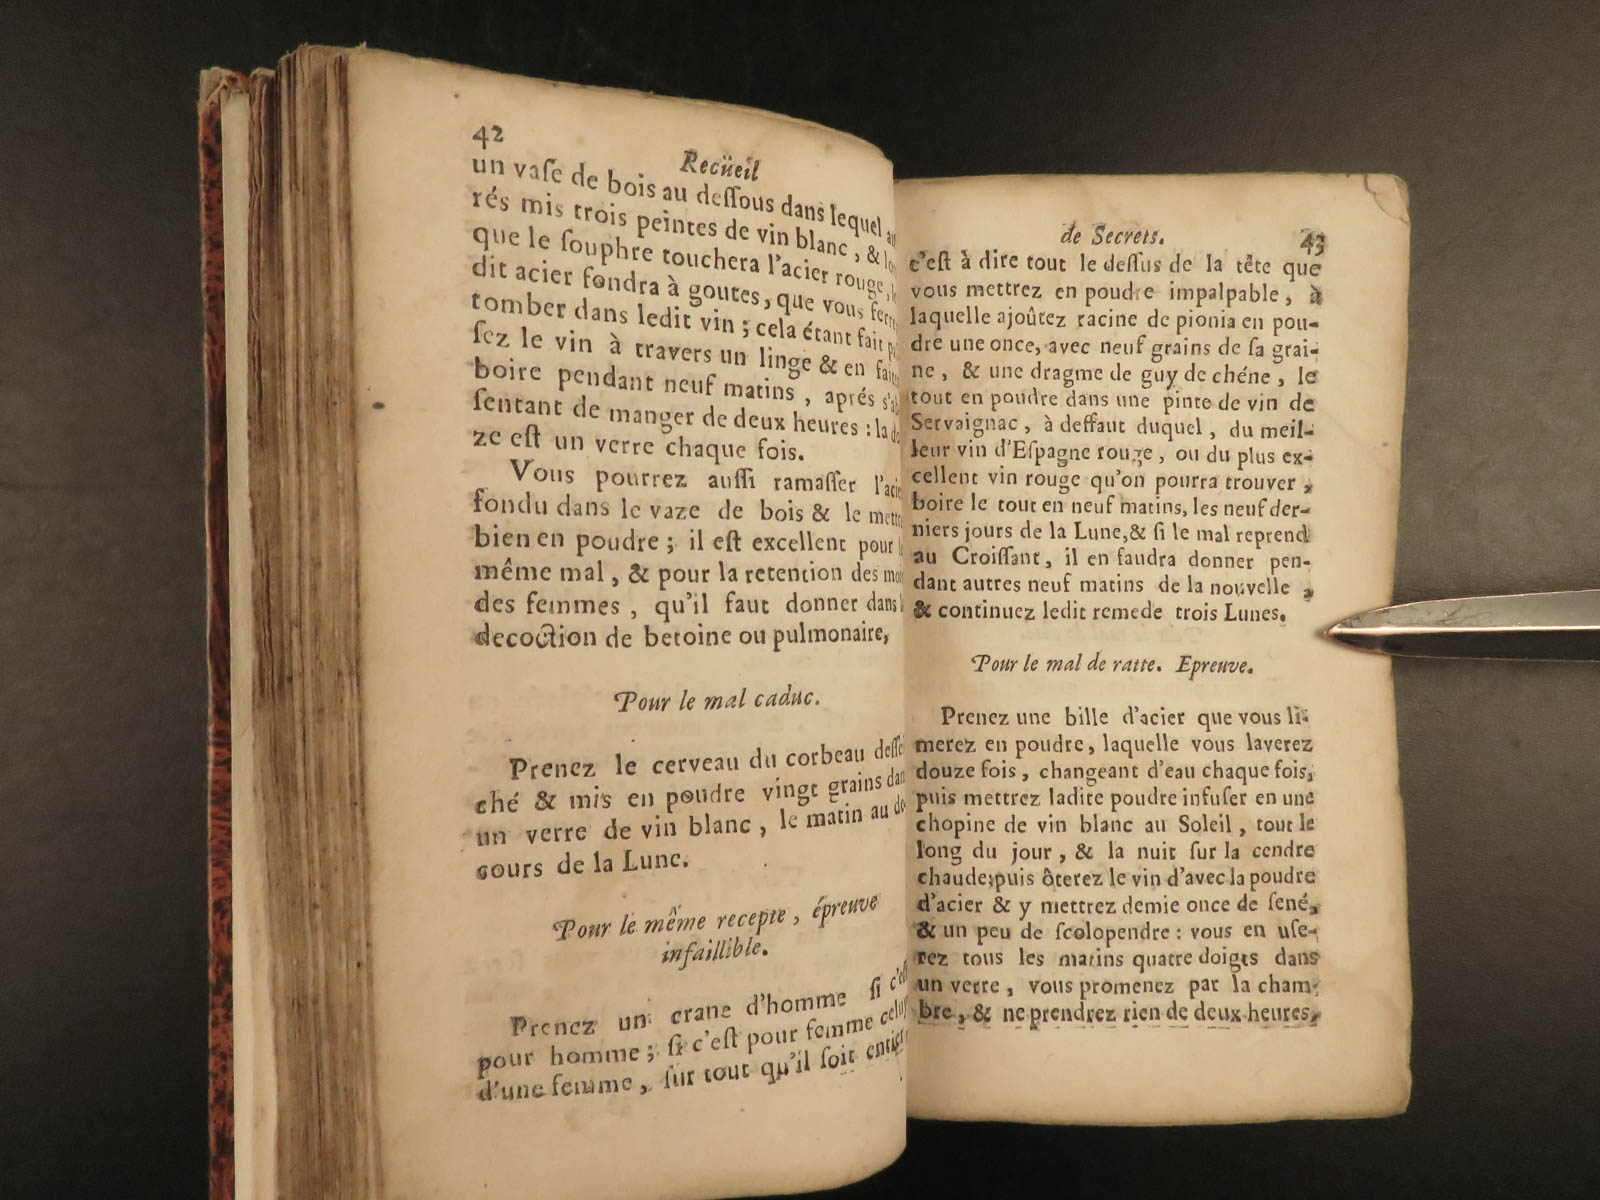 42
Recüeil
un vaſe de bois au deſſous dans lequel
rés mis trois peintes de vin blanc, &
que le ſouphre touchera l'acier rouge,
dit acier fondra à goutes, que vous
tomber dans ledit vin; cela étant fait
ſez le vin à travers un linge & en
boire pendant neuf matins, aprés
ſentant de manger de deux heures: la
ze eſt un verre chaque fois.
Vous pourrez auſſi ramaſſer
fondu dans le vaze de bois & le
bien en poudre; il eſt excellent pour
même mal, & pour la retention des
des femmes, qu'il faut donner dans
decoction de betoine ou pulmonaire,
Pour le mal caduc.
Prenez le cerveau du corbeau
ché & mis en poudre vingt grains
un verre de vin blanc, le matin au
cours de la Lune.
Pour le même recepte, épreuve
infaillible.
Prenez un crane d'homme ſi
pour homme; ſi c'eſt pour femme
d'une femme, ſur tout qu'il ſoit
de Secrets.
43
c'eſt à dire tout le deſſus de la tête que
vous mettrez en poudre impalpable, à
laquelle ajoûtez racine de pionia en pou-
dre une once, avec neuf grains de ſa grai-
ne, & une dragme de guy de chéne, le
tout en poudre dans une pinte de vin de
Servaignac, à deffaut duquel, du meil-
leur vin d'Eſpagne rouge, ou du plus ex-
cellent vin rouge qu'on pourra trouver,
boire le tout en neuf matins, les neuf der-
niers jours de la Lune, & ſi le mal reprend
au Croiſſant, il en faudra donner pen-
dant autres neuf matins de la nouvelle,
& continuez ledit remede trois Lunes.
Pour le mal de ratte. Epreuve.
Prenez une bille d'acier que vous li-
merez en poudre, laquelle vous laverez
douze fois, changeant d'eau chaque fois,
puis mettrez ladite poudre infuſer en une
chopine de vin blanc au Soleil, tout le
long du jour, & la nuit ſur la cendre
chaude; puis ôterez le vin d'avec la poudre
d'acier & y mettrez demie once de ſené,
& un peu de ſcolopendre: vous en uſe-
rez tous les matins quatre doigts dans
un verre, vous promenez par la cham-
bre, & ne prendrez rien de deux heures,